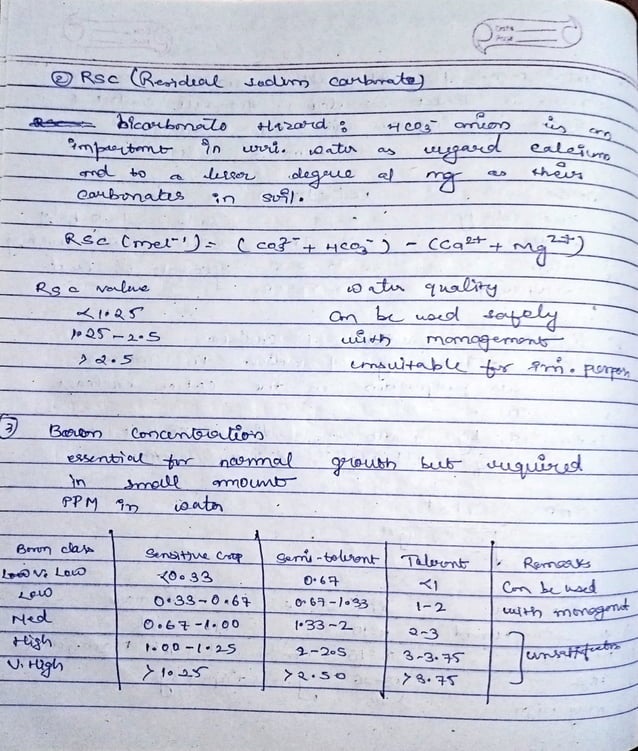 ② RSC (Residual sodium carbonate)
bicarbonate Hazard : HCO3⁻ anion is an
important in irri. water as regard calcium
and to a lesser degree of mg as their
carbonates in soil.
RSC (mel⁻¹) = (CO3²⁻ + HCO3⁻) - (Ca²⁺ + Mg²⁺)
RSC value water quality
<1.25 can be used safely
1.25 - 2.5 with management
>2.5 unsuitable for irri. purpose
3) Boron Concentration
essential for normal growth but required
in small amount
PPM in water
Boron class Sensitive crop Semi-tolerant Tolerant Remarks
V. Low <0.33 0.67 <1 Can be used
Low 0.33-0.67 0.67-1.33 1-2 with managemt
Med 0.67-1.00 1.33-2 2-3
High 1.00-1.25 2-2.5 3-3.75
V. High >1.25 >2.50 >3.75